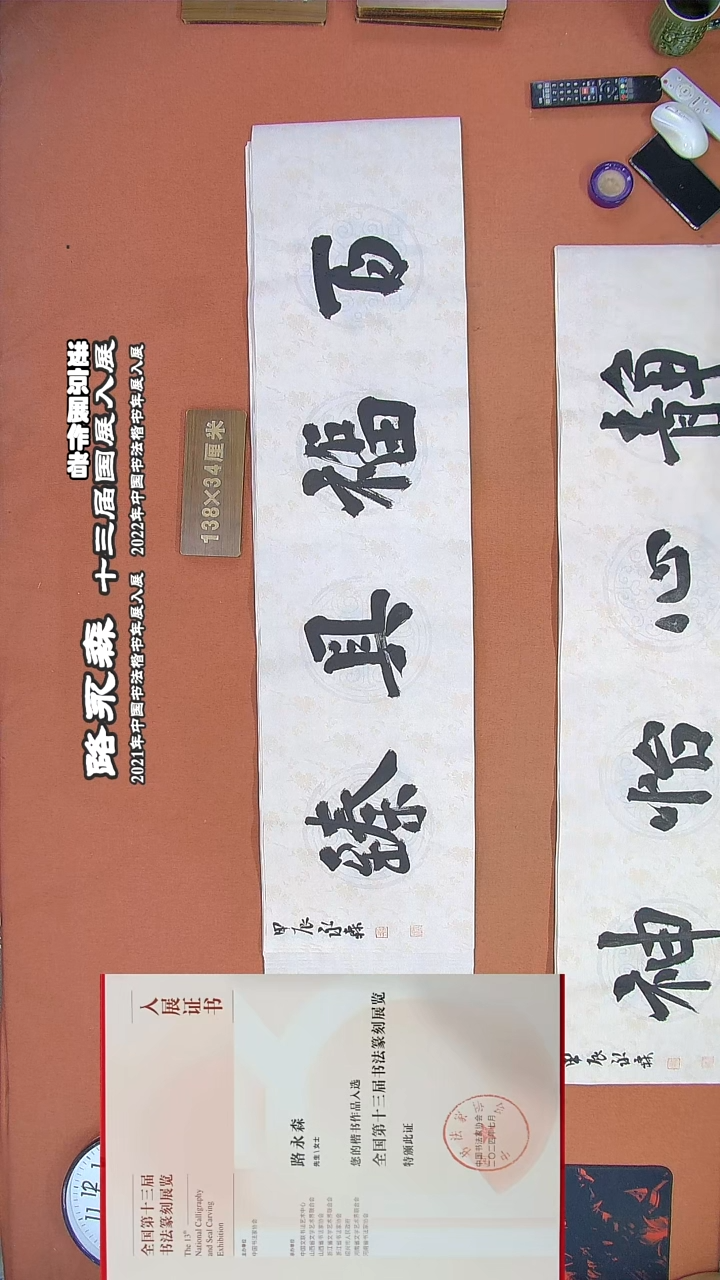 路永森 十三届国展入展
2021年中国书法楷书年展入展 2022年中国书法楷书年展入展
138×34厘米
百福具臻
甲辰永森
靜心怡神
甲辰永森
全国第十三届
书法篆刻展览
The 13th
National Calligraphy
and Seal Carving
Exhibition
入展证书
中国书法家协会
路永森
先生\女士
您的楷书作品入选
全国第十三届书法篆刻展览
特颁此证
中国书法家协会
二〇二四年七月
12
11